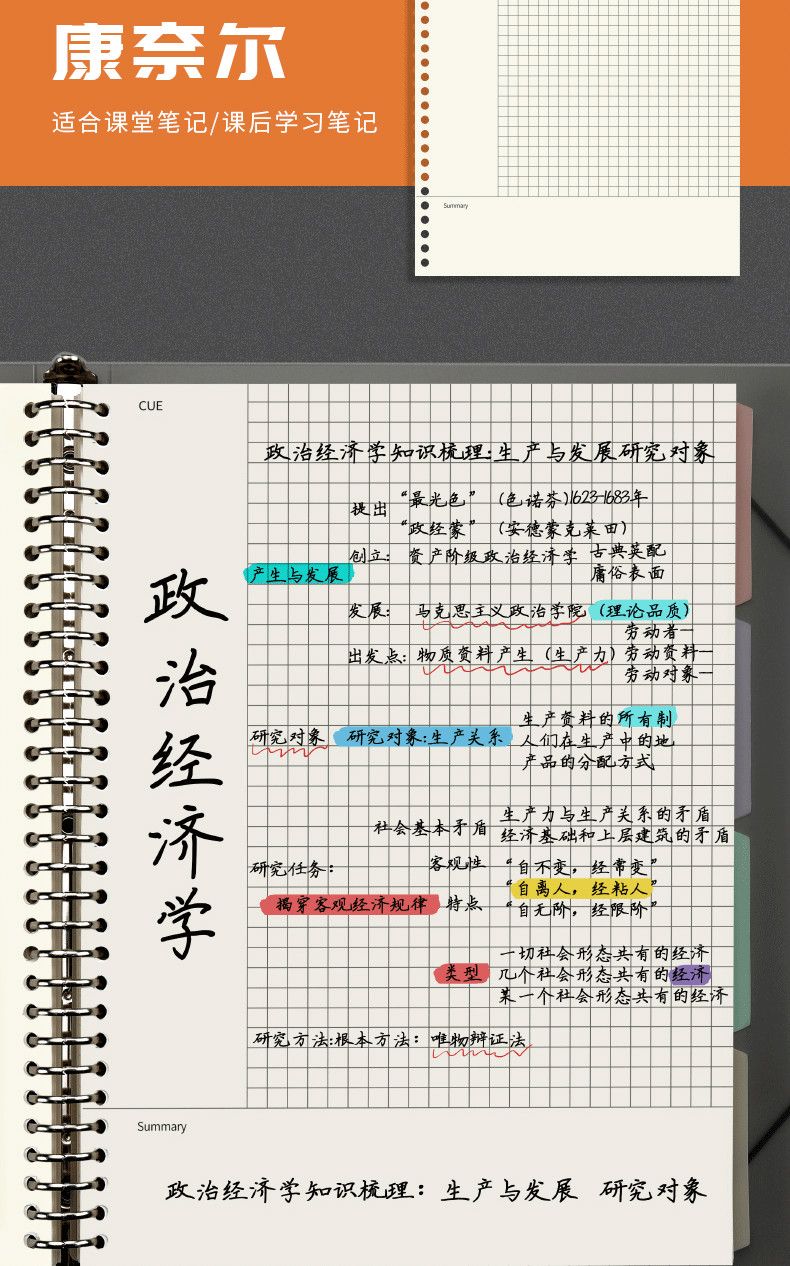 康奈尔
适合课堂笔记/课后学习笔记
Summary
CUE
政治经济学
政治经济学知识梳理:生产与发展研究对象
提出 "最光色" (色诺芬)1623-1683年
"政经蒙" (安德蒙克莱田)
创立: 资产阶级政治经济学 古典英配
庸俗表面
产生与发展
发展: 马克思主义政治学院 (理论品质)
劳动者一
出发点: 物质资料产生 (生产力) 劳动资料一
劳动对象一
生产资料的所有制
研究对象 研究对象:生产关系 人们在生产中的地
产品的分配方式
社会基本矛盾 生产力与生产关系的矛盾
经济基础和上层建筑的矛盾
研究任务: 客观性 "自不变，经常变"
"自离人，经粘人"
揭穿客观经济规律 特点 "自无阶，经限阶"
一切社会形态共有的经济
类型 几个社会形态共有的经济
某一个社会形态共有的经济
研究方法:根本方法: 唯物辩证法
Summary
政治经济学知识梳理: 生产与发展 研究对象